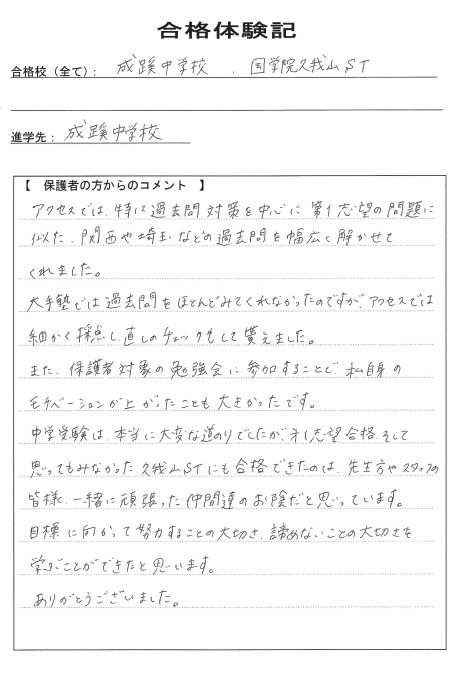 合格体験記
合格校（全て）： 成蹊中学校 、国学院久我山ST
進学先： 成蹊中学校
【 保護者の方からのコメント 】
アクセスでは、特に過去問対策を中心に第1志望の問題に
似た、関西や埼玉などの過去問を幅広く解かせて
くれました。
大手塾では過去問をほとんどみてくれなかったのですが、アクセスでは
細かく採点し、直しのチェックもして貰えました。
また、保護者対象の勉強会に参加することで、私自身の
モチベーションが上がったことも大きかったです。
中学受験は、本当に大変な道のりでしたが、才1志望合格、そして
思ってもみなかった久我山STにも合格できたのは、先生方やスタッフの
皆様、一緒に頑張った仲間達のお陰だと思っています。
目標に向かって努力することの大切さ、諦めないことの大切さを
学ぶことができたと思います。
ありがとうございました。